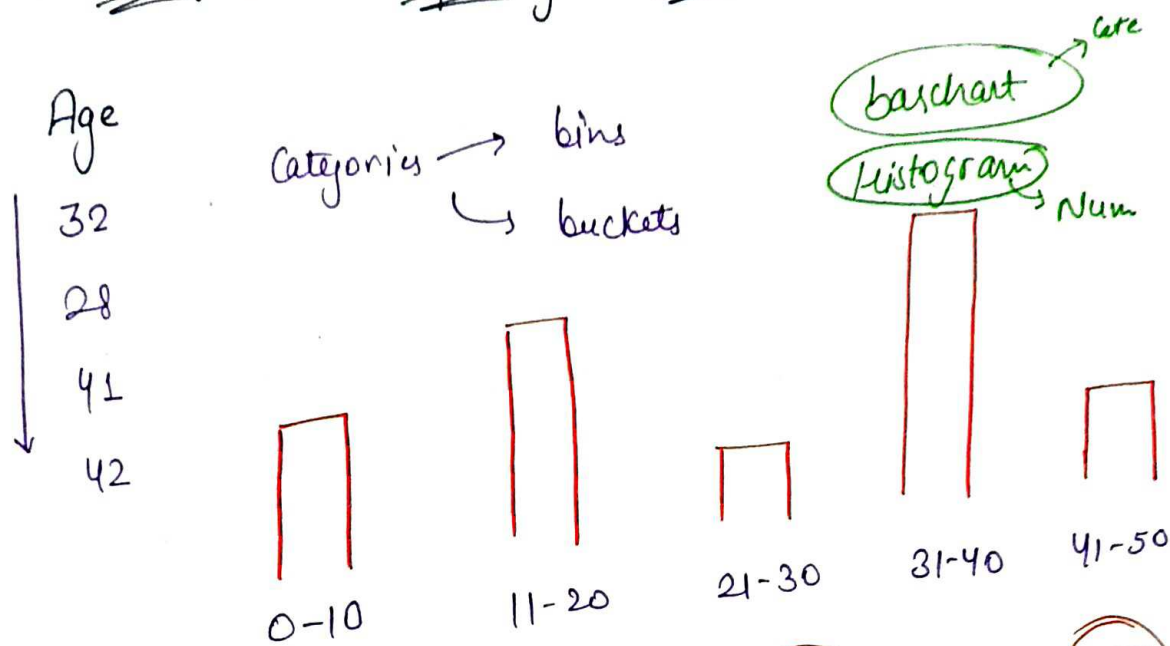 Age
32
28
41
42
Categories → bins
↳ buckets
barchart → Cate
Histogram → Num
0-10
11-20
21-30
31-40
41-50